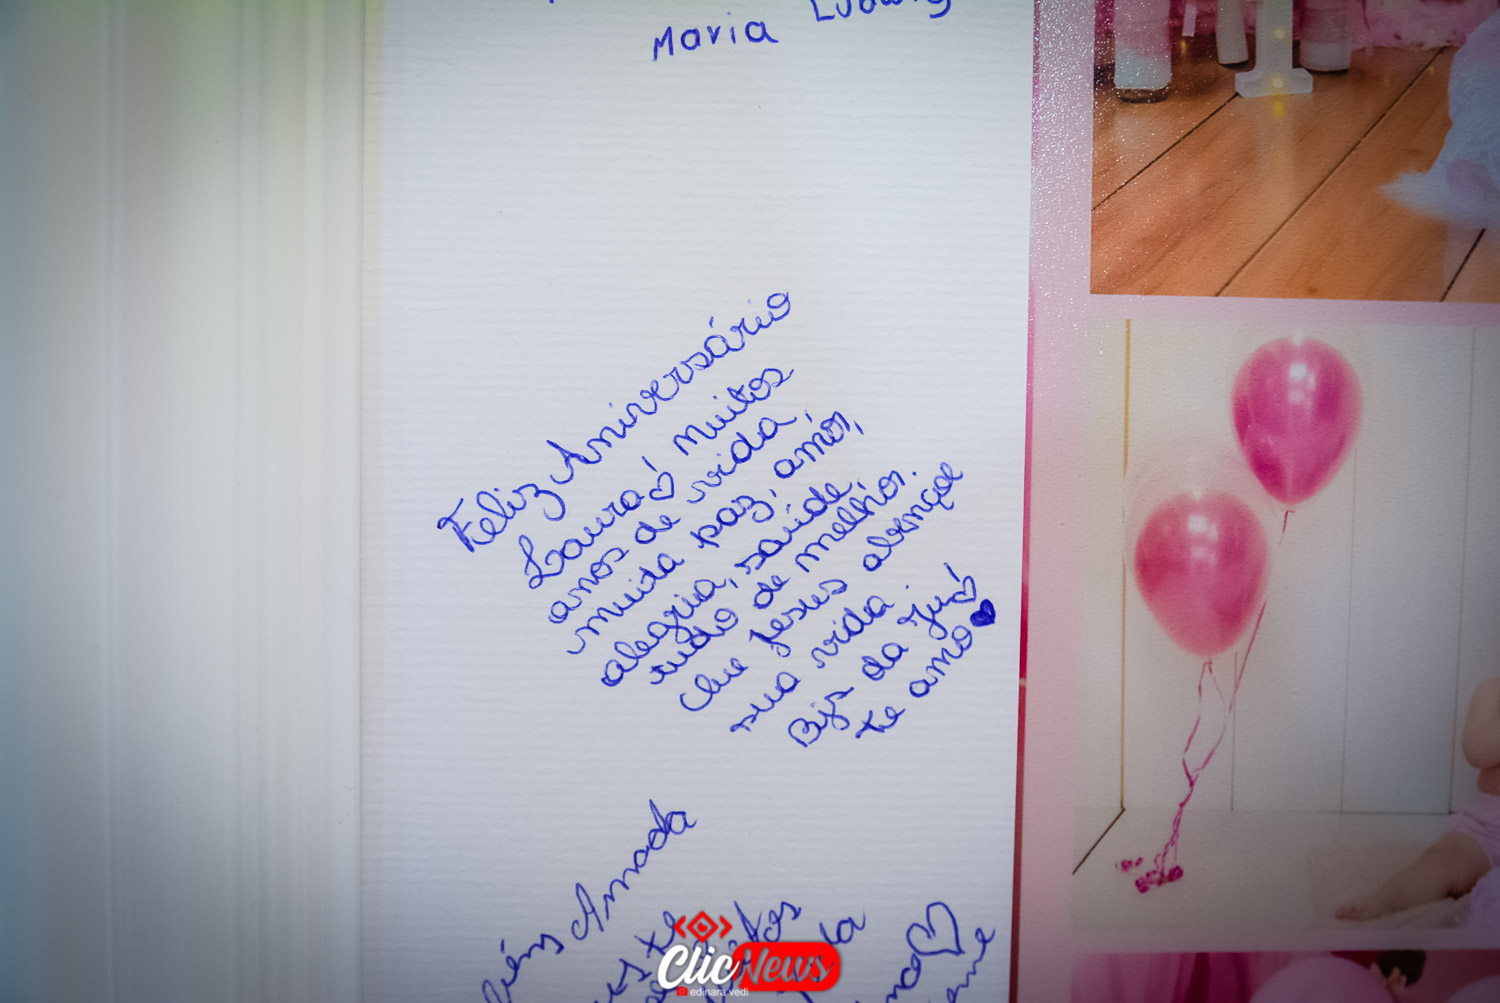 Maria Ludwig
Feliz Aniversário
Laura! muitos
anos de vida,
muita paz, amor,
alegria, saúde,
tudo de melhor.
Que Jesus abençoe
sua vida.
Bjs da Ju!
te amo
Amada
te
ClicNews
edinara.vedi